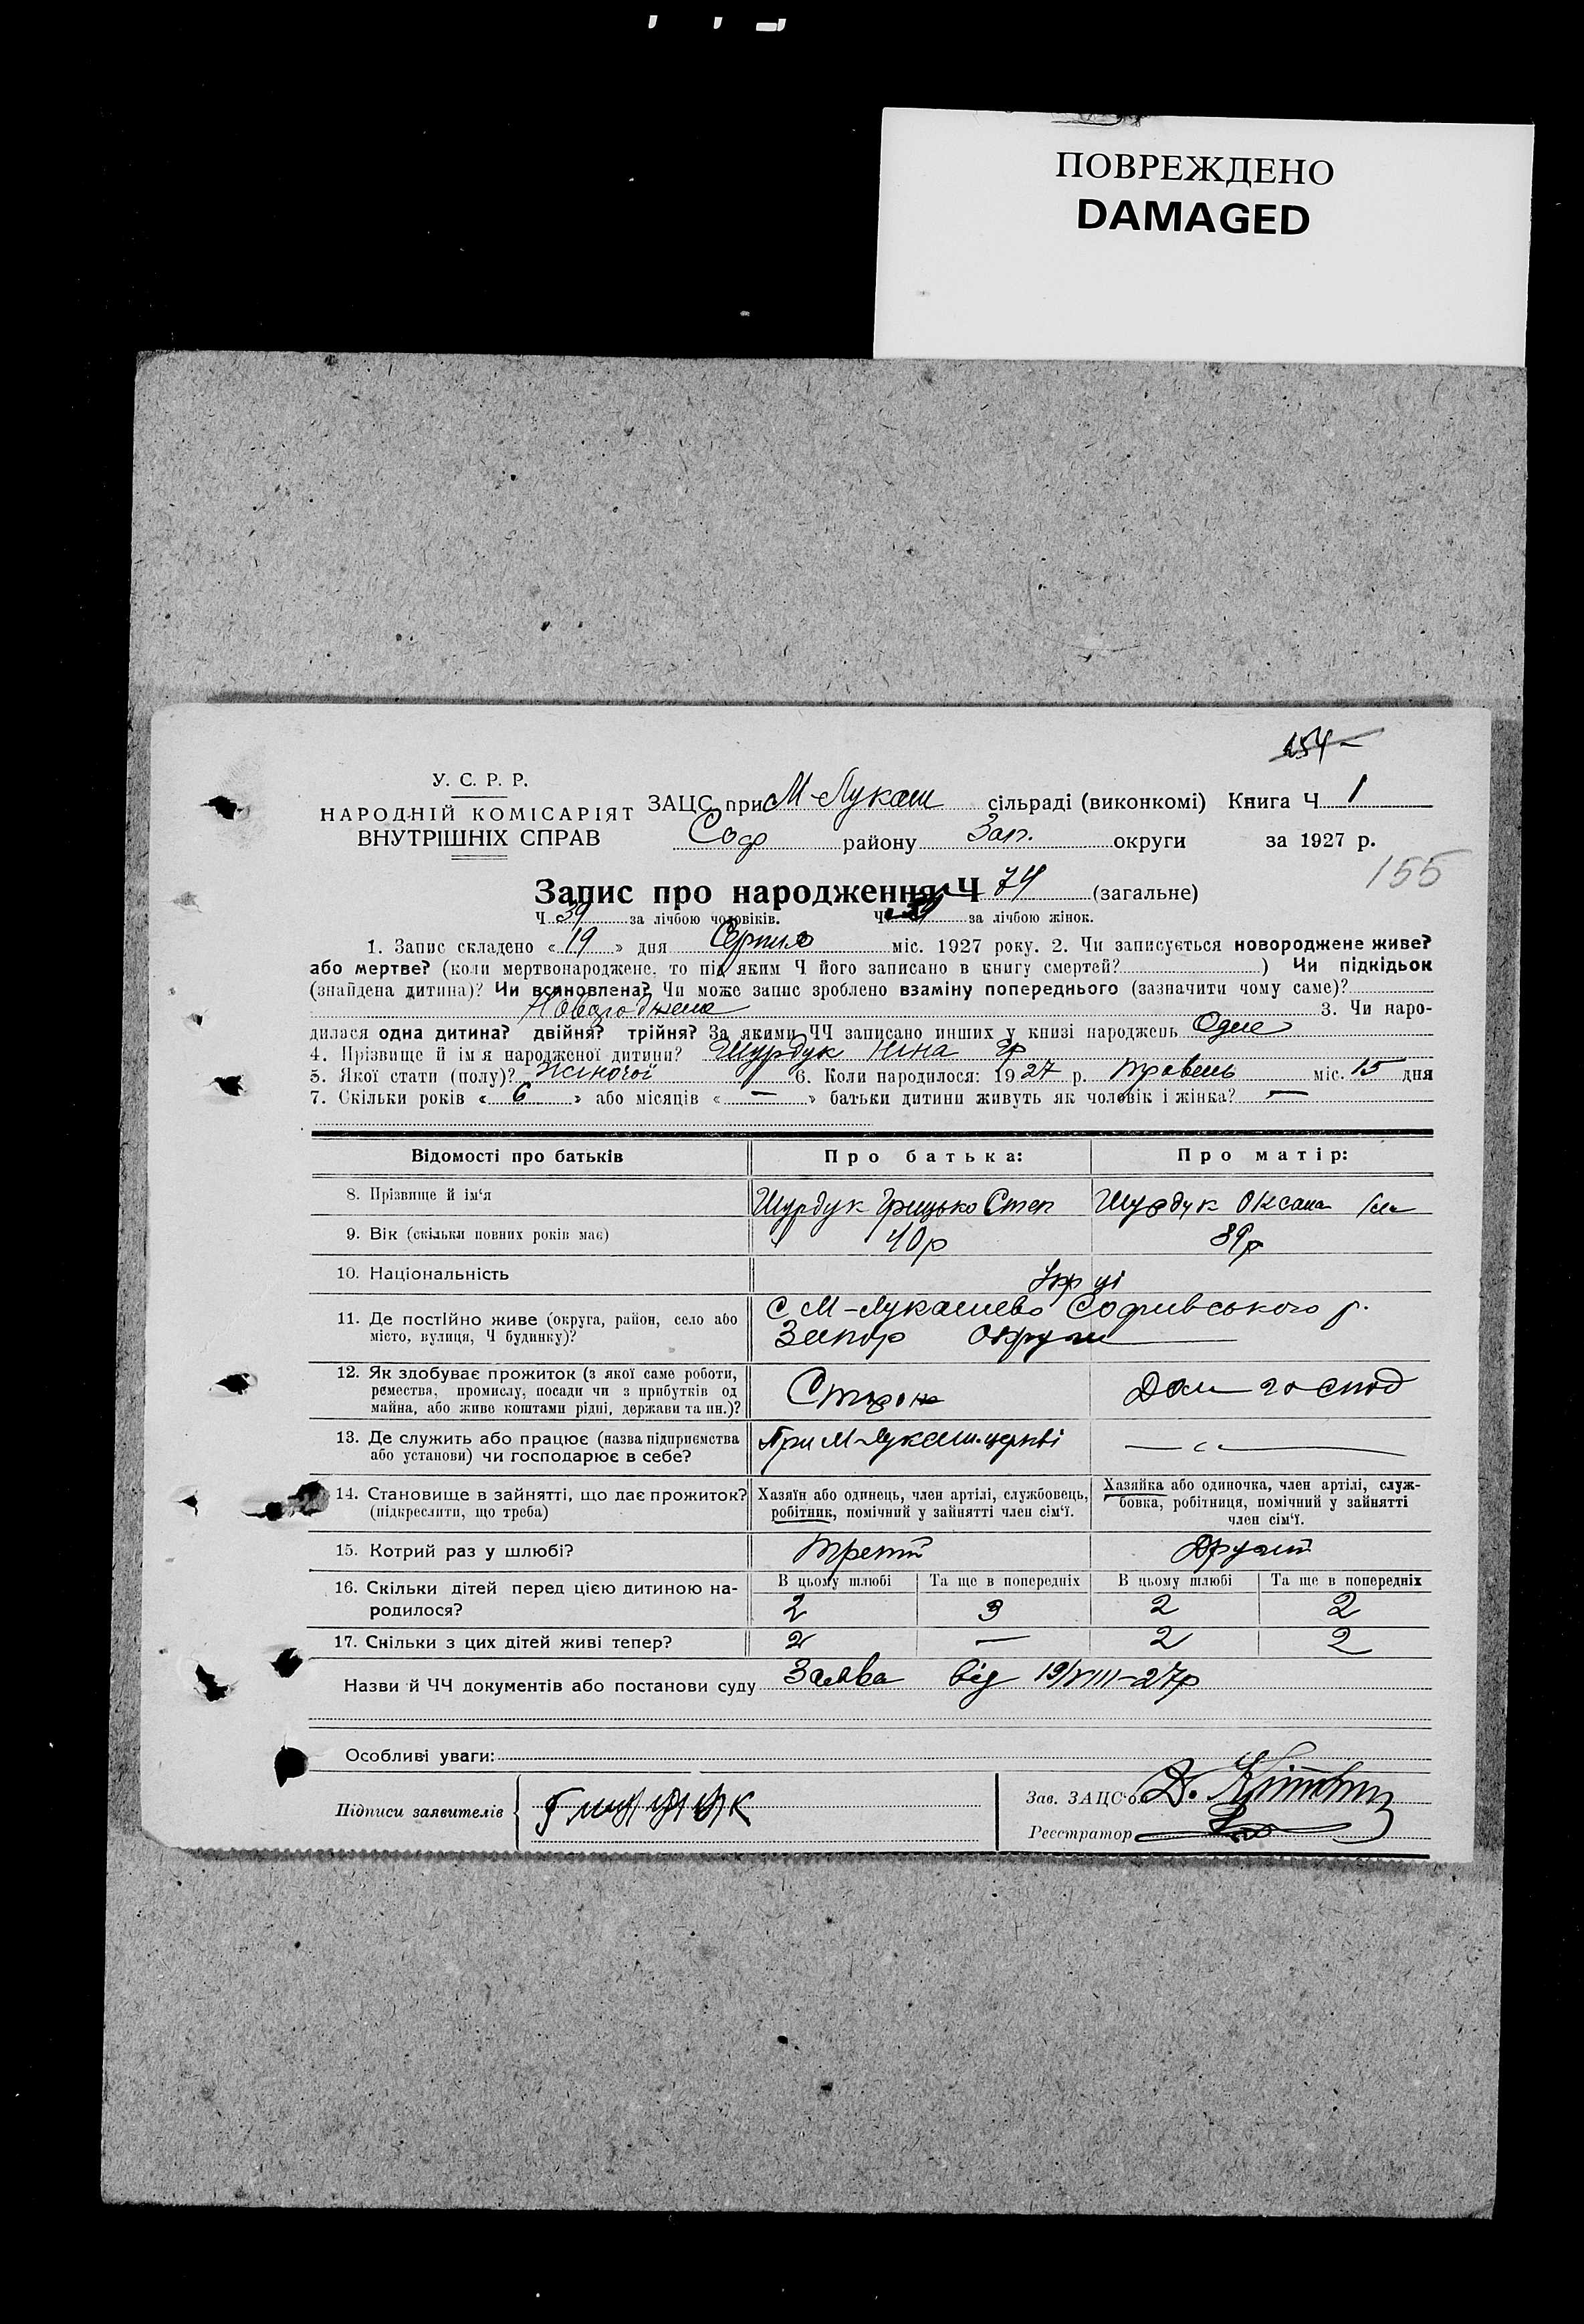 ПОВРЕЖДЕНО
DAMAGED
154
У. С. Р. Р.
НАРОДНІЙ КОМІСАРІЯТ
ВНУТРІШНІХ СПРАВ
ЗАЦС при М-Лукаш сільраді (виконкомі) Книга Ч 1
Соф району Зап. округи за 1927 р.
155
Запис про народження Ч 74 (загальне)
Ч 39 за лічбою чоловіків. Ч за лічбою жінок.
1. Запис складено « 19 » дня Серпня міс. 1927 року. 2. Чи записується новороджене живе?
або мертве? (коли мертвонароджене, то під яким Ч його записано в книгу смертей? ) Чи підкідьок
(знайдена дитина)? Чи всиновлена? Чи може запис зроблено взаміну попереднього (зазначити чому саме)?
Новороджена 3. Чи наро-
дилася одна дитина? двійня? трійня? За якими ЧЧ записано инших у книзі народжень Одне
4. Прізвище й ім'я народженої дитини? Шурдук Ніна Гр
5. Якої стати (полу)? Жіночої 6. Коли народилося: 1927 р. травень міс. 15 дня
7. Скільки років « 6 » або місяців « — » батьки дитини живуть як чоловік і жінка? —
Відомості про батьків Про батька: Про матір:
8. Прізвище й ім'я Шурдук Грицько Степ Шурдук Оксана
9. Вік (скільки повних років має) 40р 39р
10. Національність Укр ці
11. Де постійно живе (округа, район, село або С М-Лукашево Софиївського р.
місто, вулиця, Ч будинку)? Запор Округи
12. Як здобуває прожиток (з якої саме роботи,
ремества, промислу, посади чи з прибутків од
майна, або живе коштами рідні, держави та ин.)? Сторож Дом господ
13. Де служить або працює (назва підприємства При М-Лукаш. церкві
або установи) чи господарює в себе?
14. Становище в зайнятті, що дає прожиток?
(підкреслити, що треба)
Хазяїн або одинець, член артілі, службовець,
робітник, помічний у зайнятті член сім'ї.
Хазяйка або одиночка, член артілі, служ-
бовка, робітниця, помічний у зайнятті
член сім'ї.
15. Котрий раз у шлюбі? третій Другий
16. Скільки дітей перед цією дитиною на-
родилося?
В цьому шлюбі Та ще в попередніх В цьому шлюбі Та ще в попередніх
2 3 2 2
17. Скільки з цих дітей живі тепер? 2 — 2 2
Назви й ЧЧ документів або постанови суду Заява від 19/VIII-27р
Особливі уваги:
Підписи заявителів
Зав. ЗАЦС'ом Д.
Реєстратор